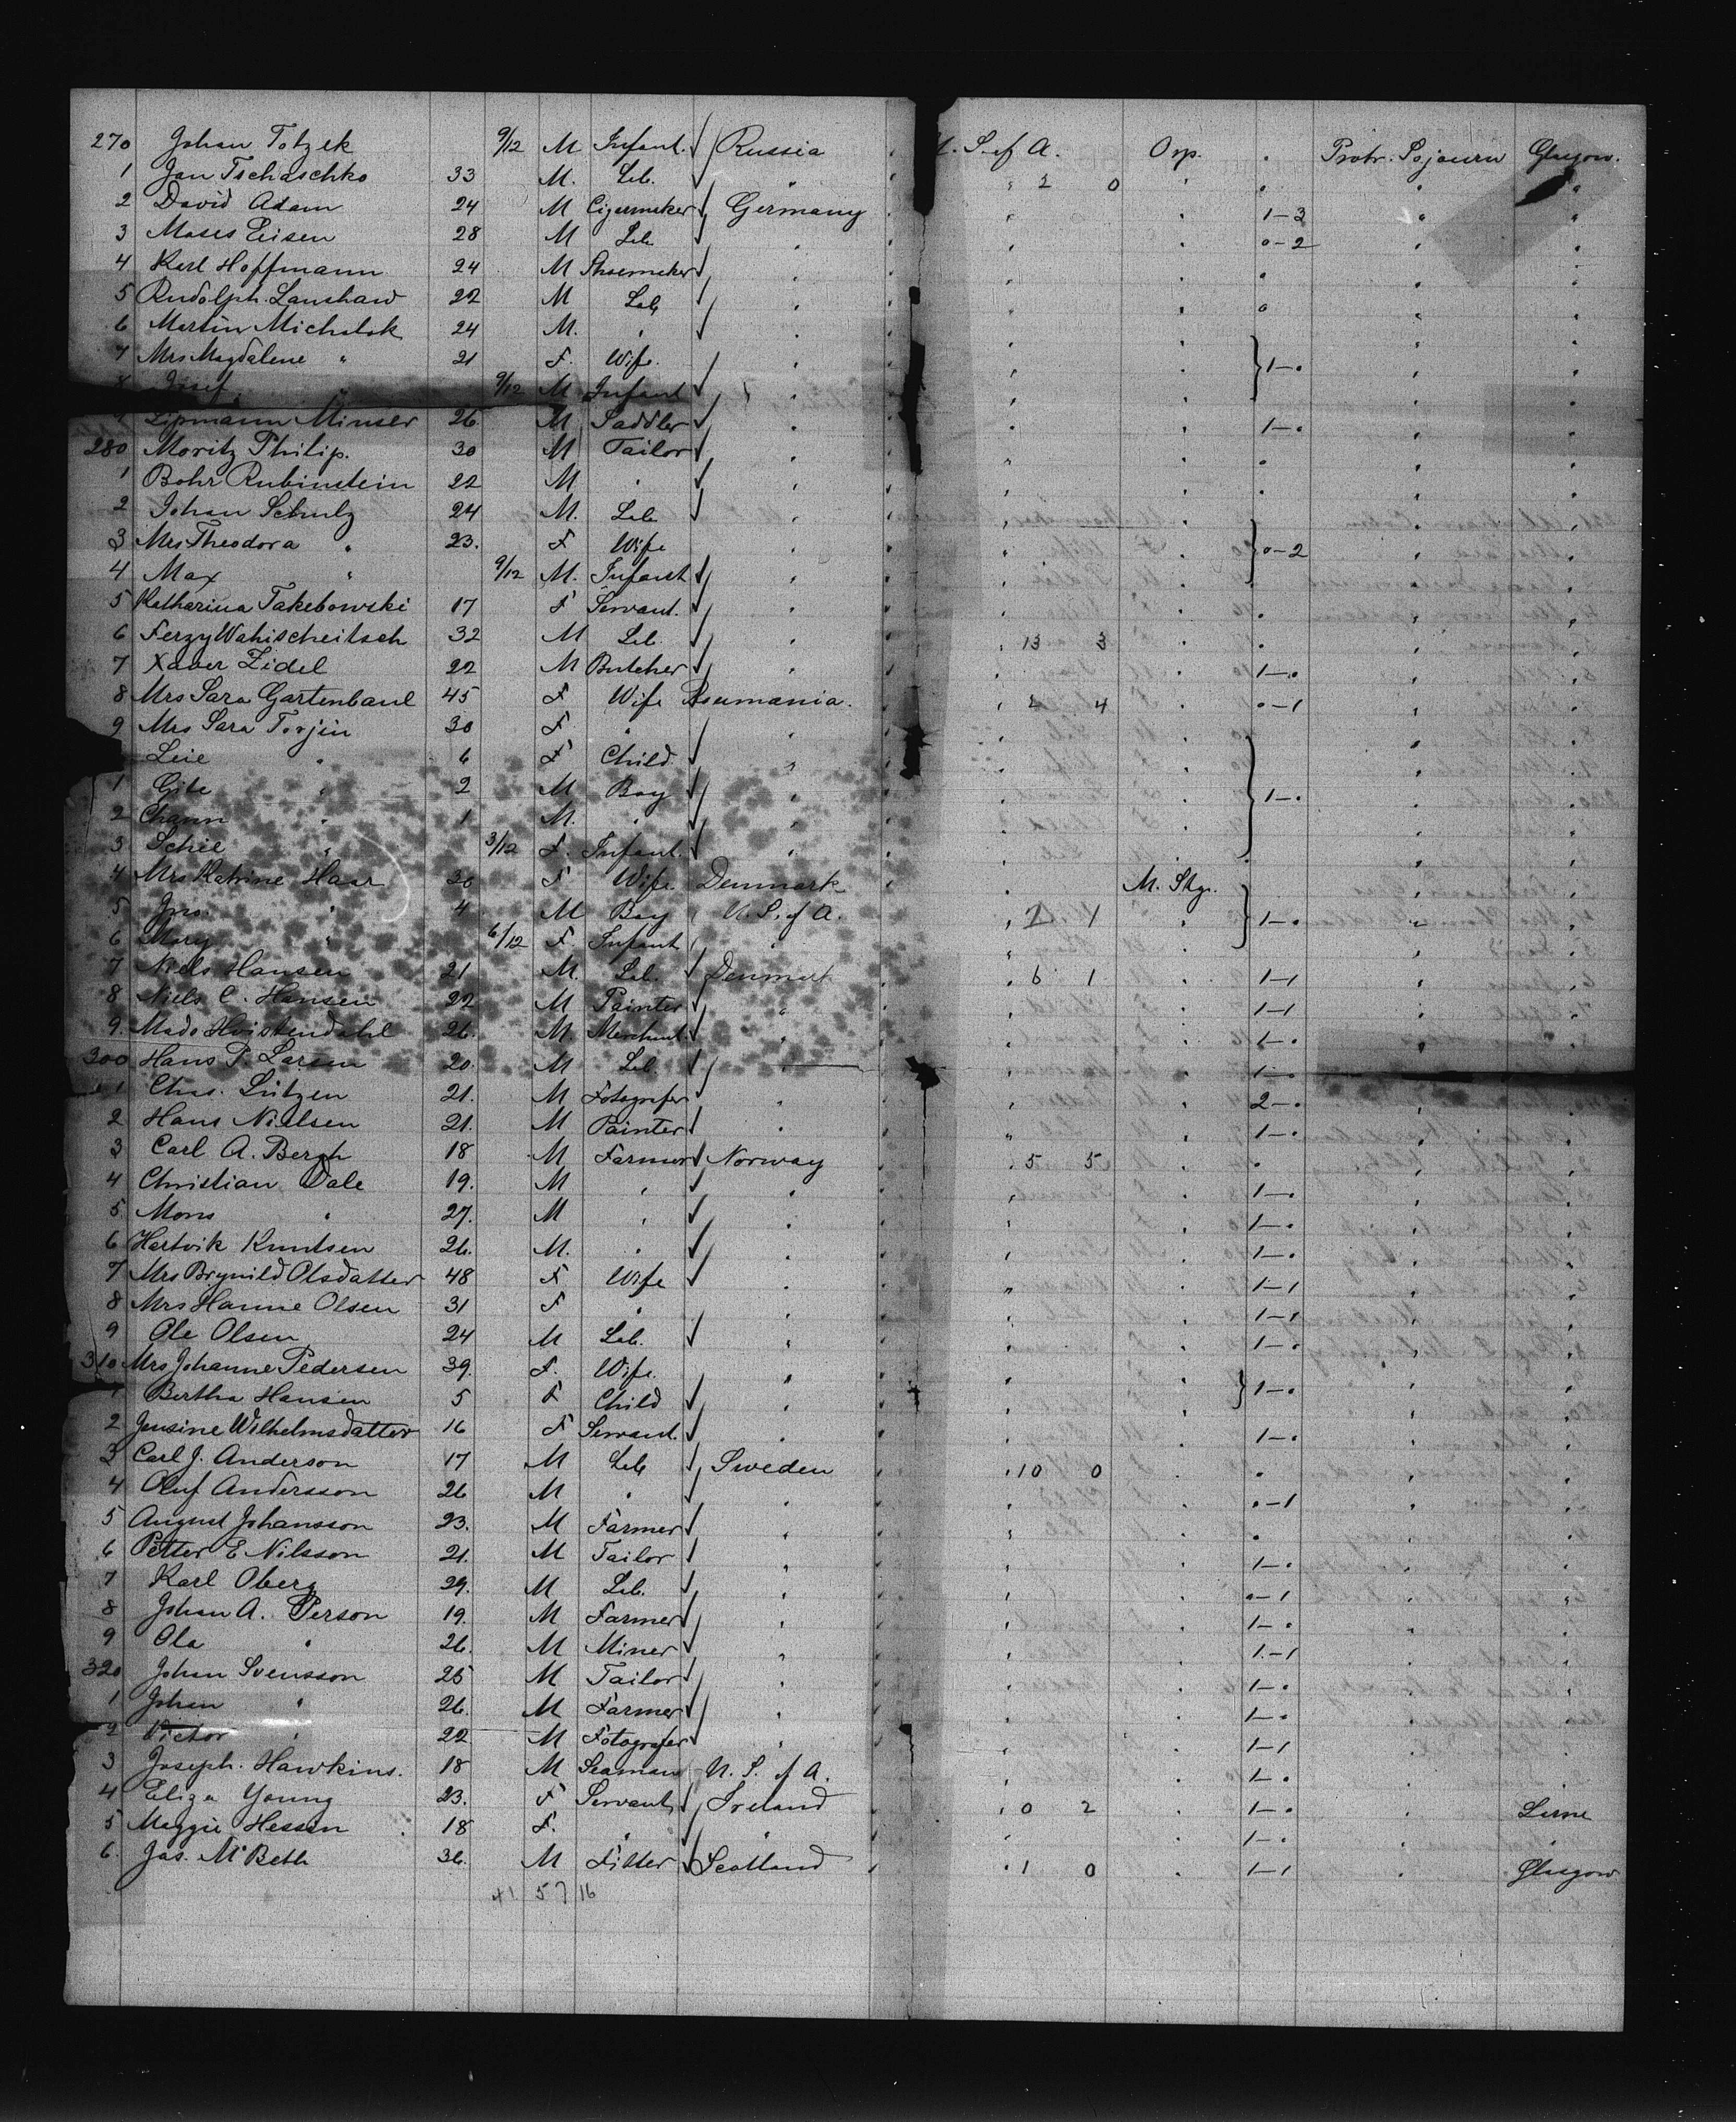 270 Johan Totzek 9/12 M Infant. Russia U. S. of A. Orp. " Protr. Sojourn Glasgow.
1 Jan Tschaschko 33 M. Lab. " " 2 0 " " " "
2 David Adam 24 M Cigarmaker Germany " " 1-3 " "
3 Moses Eisen 28 M Lab. " " " 0-2 " "
4 Karl Hoffmann 24 M Shoemaker " " " " " "
5 Rudolph. Lanshaw 22 M Lab " " " " " "
6 Martin Michalak 24 M. " " " " " "
7 Mrs Magdalene " 21 F. Wife. " " " 1-0 " "
8 Josef " 9/12 M Infant " " " " "
9 Lipmann Minser 26. M Saddler " " " 1-0 " "
280 Moritz Philip. 30 M Tailor " " " " " "
1 Bohr Rubinstein 22 M " " " " " " "
2 Johan Schulz 24 M. Lab " " " " "
3 Mrs Theodora " 23. F Wife " " " 0-2 " "
4 Max " 9/12 M. Infant " " " " "
5 Katharina Takebowski 17 F Servant. " " " " " "
6 Ferzy Wahischeitsch 32 M Lab. " " 13 3 " " " "
7 Xaver Zidel 22 M Butcher " " " 1-0 " "
8 Mrs Sara Gartenbaul 45 F Wife Roumania. " 2 4 " 0-1 " "
9 Mrs Sara Torjin 30 F " " " " " "
Leie " 6 F Child. " " " " "
1 Gite " 2 M Boy " " " 1-0 " "
2 Chann " 1 M. " " " " " "
3 Schie " 3/12 F. Infant. " " " " "
4 Mrs Katrine Haar 30 F Wife. Denmark " M. Stgr. " "
5 Jns. " 4 M Boy U. S. of A. " 2 1 " 1-0 " "
6 Mary " 6/12 F. Infant " " " " "
7 Niels Hansen 21 M. Lab. Denmark " 6 1 " 1-1 " "
8 Niels C. Hansen 22 M Painter " " " 1-1 " "
9. Mads Hvistendahl 26. M. Merchant. " " " 1-0 " "
300 Hans P. Larsen 20. M Lab. " " " 1-0 " "
1 Chas. Lützen 21. M Fotografer " " " 2-0 " "
2 Hans Nielsen 21. M Painter " " " 1-0 " "
3 Carl A. Bergh 18 M Farmer Norway " 5 5 " " " "
4 Christian Dale 19. M " " " " 1-0 " "
5. Mons " 27. M " " " " 1-0 " "
6 Hartvik Knutsen 26. M. " " " " 1-0 " "
7 Mrs Brynild Olsdatter 48 F Wife " " " 1-1 " "
8 Mrs Hanne Olsen 31 F " " " " 1-1 " "
9 Ole Olsen 24 M Lab. " " " 1-0 " "
310 Mrs Johanne Pedersen 39. F. Wife. " " " 1-0 " "
1 Bertha Hansen 5 F Child " " " " "
2 Jensine Wilhelmsdatter 16 F Servant. " " " 1-0 " "
3 Carl J. Anderson 17 M Lab Sweden " 10 0 " " " "
4 Oluf Andersson 26 M " " " " 0-1 " "
5 August Johansson 23. M Farmer " " " " " "
6 Petter E Nilsson 21. M Tailor " " " 1-0 " "
7 Karl Oberg 29. M Lab. " " " 0-1 " "
8 Johan A. Person 19. M Farmer " " " 1-0 " "
9 Ola " 26. M Miner " " " 1-1 " "
320 Johan Svensson 25 M Tailor " " " 1-0 " "
1 Johan " 26. M Farmer " " " 1-0 " "
2 Victor " 22 M Fotografer " " " 1-1 " "
3 Joseph. Hawkins. 18 M Seaman U. S. of A. " " 1-0 " "
4 Eliza Young 23. F Servant Ireland " 0 2 " 1-0 " Larne
5 Maggie Hessan 18 F. " " " " 1-0 " "
6. Jas. McBeth 36. M Fitter Scotland " 1 0 " 1-1 " Glasgow
41 57 16